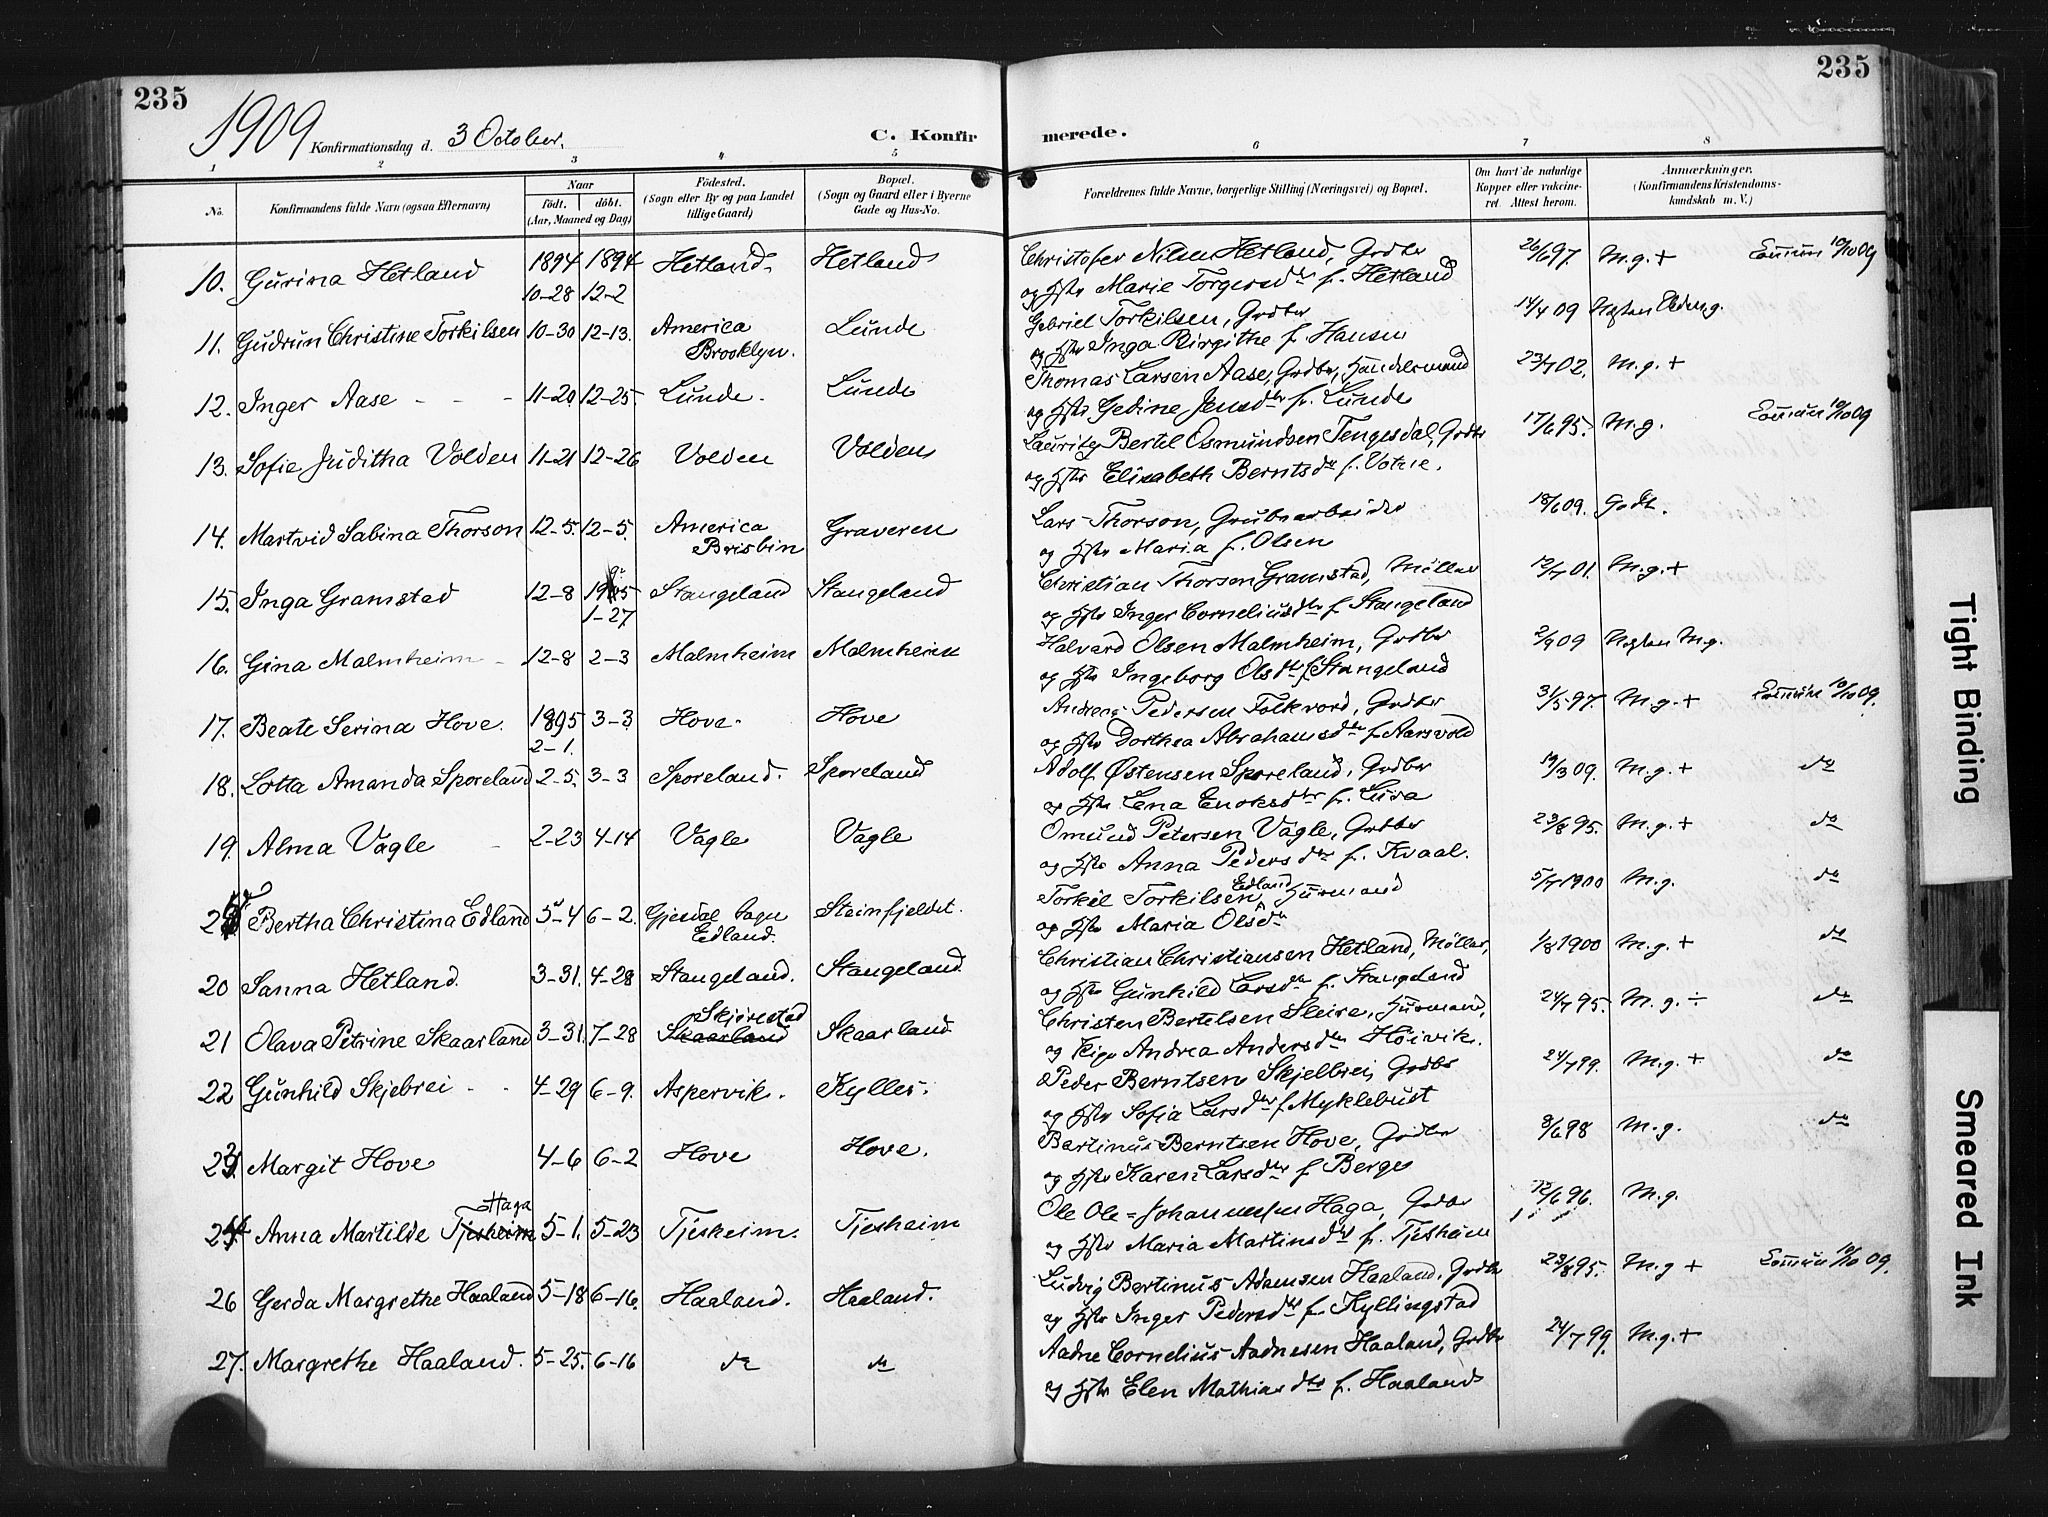 235
235
1909 Konfirmationsdag d. 3 October.
C. Konfirmerede.
1 2 3 4 5 6 7 8
No.
Konfirmandens fulde Navn (ogsaa Efternavn)
Naar
født. døbt.
(Aar, Maaned og Dag)
Födested.
(Sogn eller By og paa Landet
tillige Gaard)
Bopæl.
(Sogn og Gaard eller i Byerne
Gade og Hus-No.
Forældrenes fulde Navne, borgerlige Stilling (Næringsvei) og Bopæl.
Om havt de naturlige
Kopper eller vaccine-
ret. Attest herom.
Anmærkninger.
(Konfirmandens Kristendoms-
kundskab m. V.)
10. Gurina Hetland 1894 10-28 1894 12-2 Hetland. Hetland
Christofer Nilsen Hetland, Grdbr 26/6 97. M.g.+ 10/10 09
og Hstr Marie Torgersdtr f. Hetland
11. Gudrun Christine Torkilsen 10-30 12-13. America Brooklyn. Lunde
Gabriel Torkilsen, Grdbr 14/4 09
og Hstr Inga Birgithe f. Hansen
12. Inger Aase - - - 11-20. 12-25. Lunde. Lunde
Thomas Larsen Aase, Grdbr, Handelsmand 23/7 02. M.g.+
og Hstr Gedine Jensdtr f. Lunde
13. Sofie Juditha Volden 11-21 12-26 Volden Volden
Lauritz Bertel Osmundsen Tengesdal, Grdbr 17/6 95. M.g. 10/10 09
og Hstr Elisabeth Berntsdtr f. Votne.
14. Martvid Sabina Thorson 12-5. 12-5. America Brisbin Graveren
Lars Thorson, Grubearbeider 18/6 09. Godt.
og Hstr Maria f. Olsen
15. Inga Gramstad 12-8 1895 1-27 Stangeland Stangeland
Christian Thorsen Gramstad, Møller 12/7 01. M.g.+
og Hstr Inger Corneliusdtr f. Stangeland
16. Gina Malmheim - 12-8 2-3 Malmheim Malmheim
Halvard Olsen Malmheim, Grdbr 2/9 09 M.g.
og Hstr Ingeborg Olsdtr f. Stangeland
17. Beate Serina Hove. 1895 2-1. 3-3 Hove. Hove
Andreas Pedersen Folkvord, Grdbr 31/5 97. M.g.+ 10/10 09.
og Hstr Dorthea Abrahamsdtr f. Aarsvold
18. Lotta Amanda Sporeland 2-5. 3-3 Sporeland. Sporeland
Adolf Østensen Sporeland, Grdbr 19/3 09. M.g.+ do
og Hstr Lena Enoksdtr f. Lura
19. Alma Vagle - 2-23 4-14 Vagle Vagle
Omund Petersen Vagle, Grdbr 23/8 95. M.g.+ do
og Hstr Anna Pedersdtr f. Kvaal.
Bertha Christina Edland 5-4 6-2. Gjesdal Sogn Edland. Steinfjeldet.
Torkil Torkilsen Edland, Husmand 5/7 1900 M.g. do
og Hstr Maria Olsdtr
20 Sanna Hetland. 3-31. 4-28 Stangeland. Stangeland.
Christian Christiansen Hetland, Møller, 1/8 1900 M.g.+ do
og Hstr Gunhild Larsdtr f. Stangeland
21 Olava Petrine Skaarland 3-31. 7-28 Skjørestad Skaarland Skaarland
Christen Bertelsen Sleire, Husmand, 24/7 95. M.g. ÷ do
og Pige Andrea Andersdtr Høivik.
22 Gunhild Skjebrei - - 4-29 6-9. Aspervik. Kylles.
Peder Berntsen Skjelbrei, Grdbr 24/7 99. M.g.+ do
og Hstr Sofia Larsdtr f. Myklebust
23. Margit Hove 4-6 6-2 Hove Hove.
Bertinus Berntsen Hove, Grdbr 8/6 98 M.g. do
og Hstr Karen Larsdtr f. Berge
24 Anna Martilde Tjesheim Haga 5-1. 5-23 Tjesheim. Tjesheim
Ole Ole-Johannessen Haga, Grdbr 12/6 96. M.g.
og Hstr Maria Martinsdtr f. Tjesheim
26 Gerda Margrethe Haaland 5-18 6-16. Haaland. Haaland.
Ludvig Bertinus Adamsen Haaland, Grdbr 23/8 95. M.g+ 10/10 09.
og Hstr Inger Pedersdtr f. Kyllingstad
27. Margrethe Haaland. 5-25. 6-16 do do
Aadne Cornelius Aadnesen Haaland, Grdbr 24/7 99. M.g.+
og Hstr Elen Mathiasdtr f. Haaland
Tight Binding
Smeared Ink